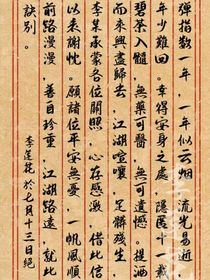 彈指數年，一年一似云烟流光易逝
年少難回。幸得安身之處，隱匿十一載
碧茶入髓，無藥可醫，提酒
而來興盡歸去，江湖喧嚷足慰殘生
李某承蒙各位關照，心存感激，借此信
以表謝忱。願諸位平安無憂，一帆風順
前路漫漫，善自珍重，江湖路遠，就此
訣別。
李蓮花於七月十三日絕